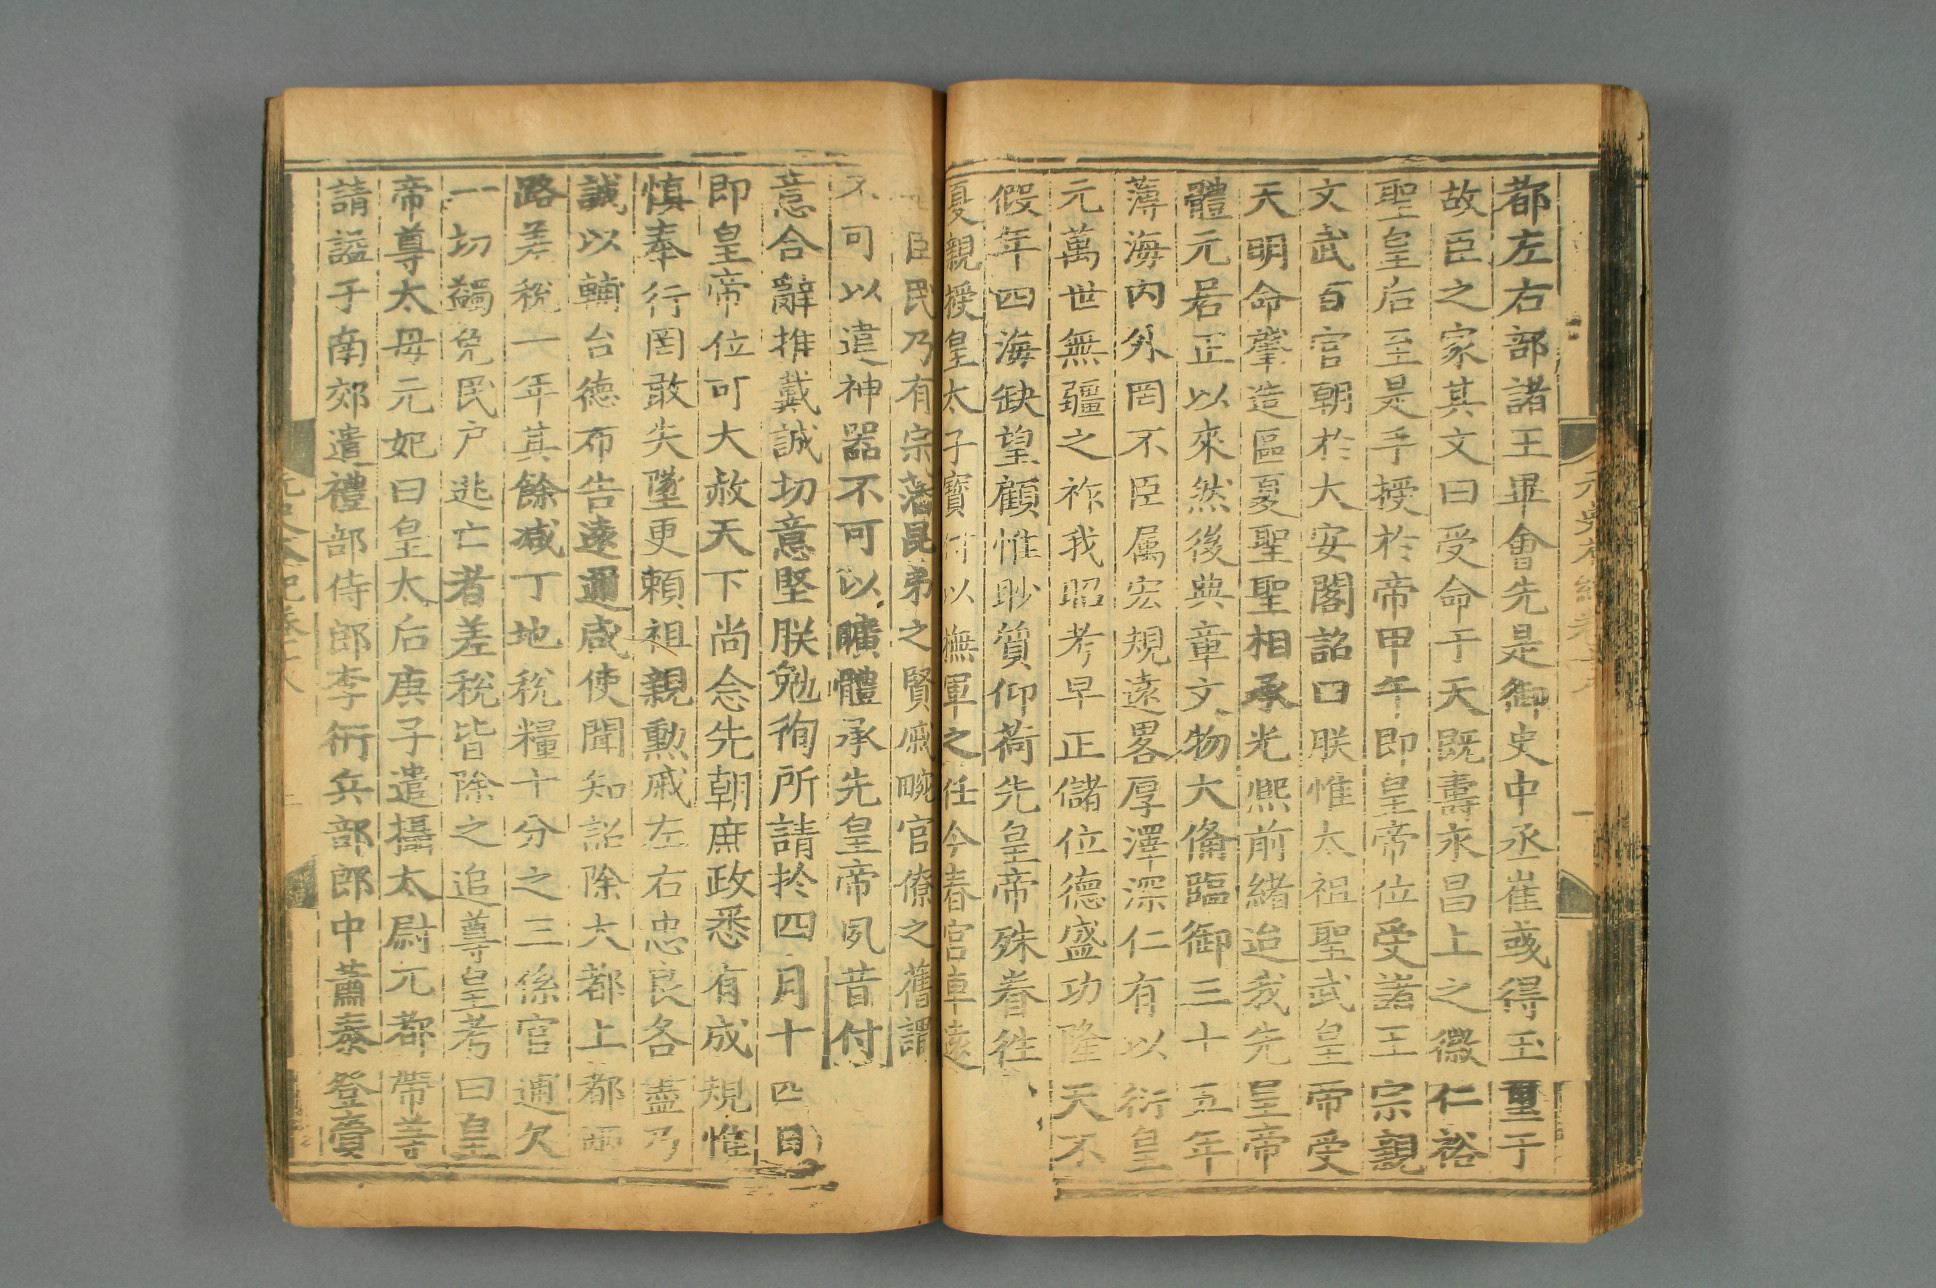 都左右部諸王畢會先是御史中丞崔彧得玉璽于
故臣之家其文曰受命于天既壽永昌上之徽仁裕
聖皇后至是手授於帝甲午即皇帝位受諸王宗親
文武百官朝於大安閣詔曰朕惟太祖聖武皇帝受
天明命肇造區夏聖聖相承光熈前緒迨我先皇帝
體元居正以來然後典章文物大備臨御三十五年
薄海内外罔不臣属宏規遠畧厚澤深仁有以衍皇
元萬世無疆之祚我昭考早正儲位德盛功隆天不
假年四海缺望顧惟眇質仰荷先皇帝殊眷徃
夏親授皇太子寶付以撫軍之任今春宫車遠
臣民乃有宗藩昆弟之賢戚畹官僚之舊謂
不可以違神器不可以曠體承先皇帝夙昔付
意合辭推戴誠切意堅朕勉徇所請於四月十四日
即皇帝位可大赦天下尚念先朝庶政悉有成規惟
慎奉行罔敢失墜更頼祖親勲戚左右忠良各盡乃
誠以輔台德布告遠邇咸使聞知詔除大都上都兩
路差税一年其餘减丁地税糧十分之三係官逋欠
一切蠲免民户逃亡者差税皆除之追尊皇考曰皇
帝尊太母元妃曰皇太后庚子遣攝太尉兀都帶等
請諡于南郊遣禮部侍郎李衎兵部郎中蕭泰登賫